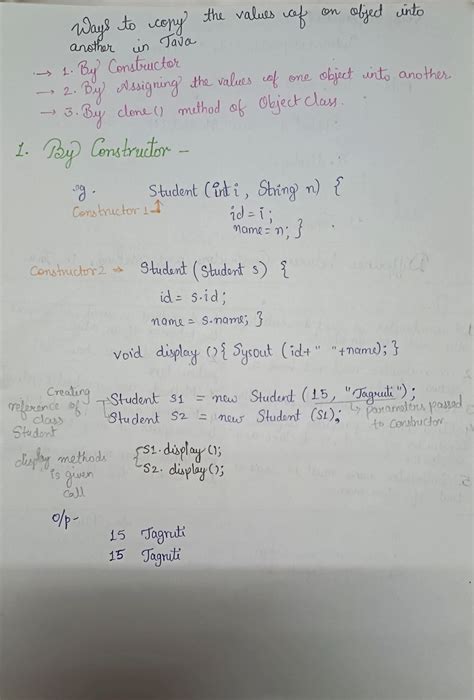 Ways to copy the values of on object into
another in Java
→ 1. By Constructor
→ 2. By Assigning the values of one object into another
→ 3. By clone() method of Object Class.
1. By Constructor -
eg. Student (int i, String n) {
Constructor 1
id = i;
name = n; }
Constructor 2 → Student (Student s) {
id = s.id;
name = s.name; }
void display () { Sysout (id+" "+name); }
Creating
reference of
class
Student
Student s1 = new Student (15, "Jagruti");
Student s2 = new Student (S1);
↳ parameters passed
to constructor
display methods
is given
call
S1.display();
S2.display();
o/p-
15 Jagruti
15 Jagruti